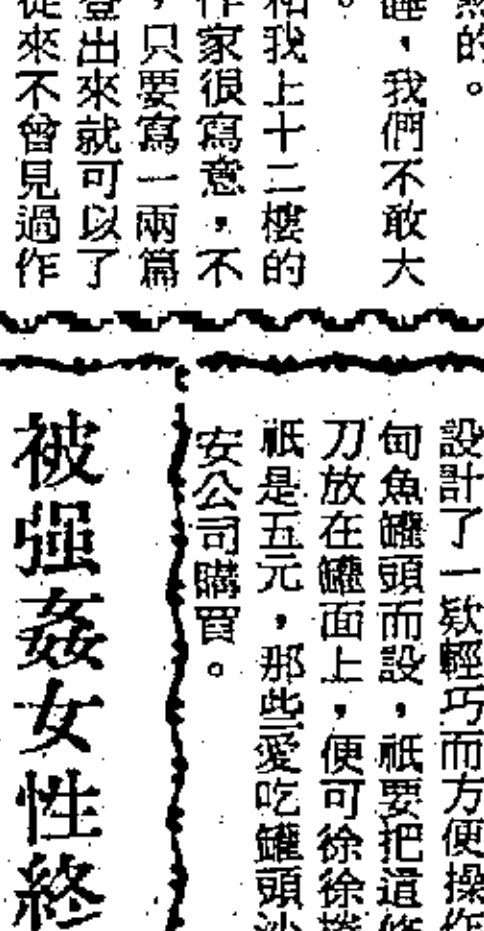 熱的。
睡，我們不敢大
。
和我上十二樓的
作家很寫意，不
，只要寫一兩篇
登出來就可以了
從來不曾見過作
設計了一欵輕巧而方便操作
甸魚罐頭而設，祇要把這條
刀放在罐面上，便可徐徐捲
祇是五元，那些愛吃罐頭沙
安公司購買。
被强姦女性終